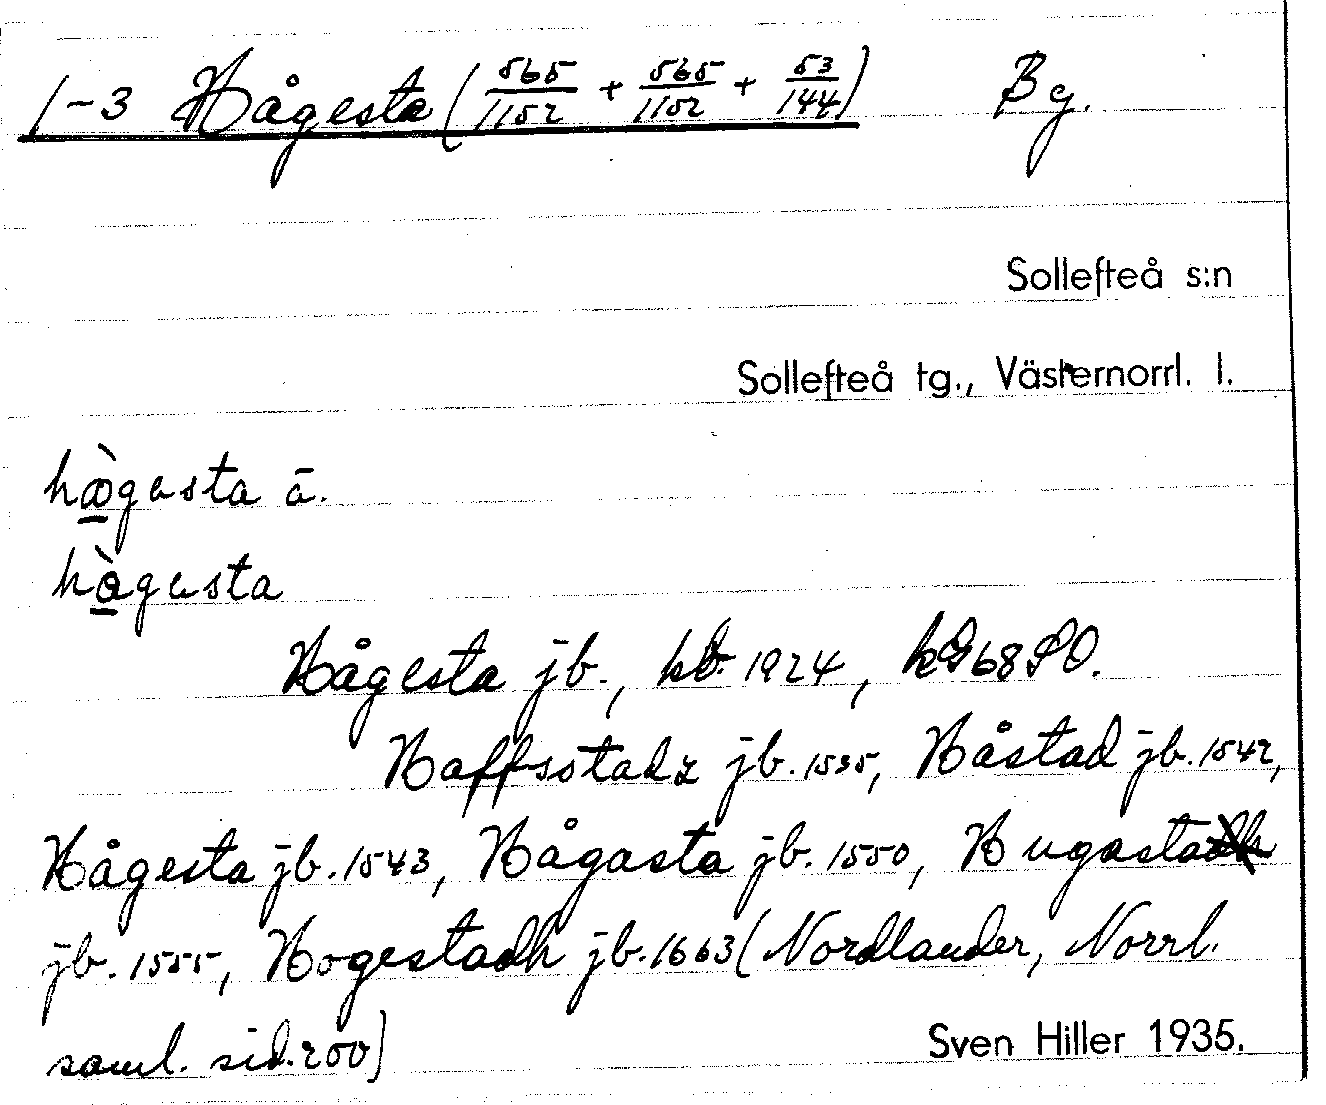 1-3 Hågesta (565/1152 + 565/1152 + 53/144) By.
Sollefteå s:n
Sollefteå tg., Västernorrl. l.
hæ̀gesta ā.
hàgesta
Hågesta jb., kb. 1924, k
Haffsstadz jb. 1535, Håstad jb. 1542,
Hågesta jb. 1543, Hågasta jb. 1550, Hugasta
jb. 1555, Hogestadh jb. 1663 (Nordlander, Norrl.
saml. sid. 200)
Sven Hiller 1935.